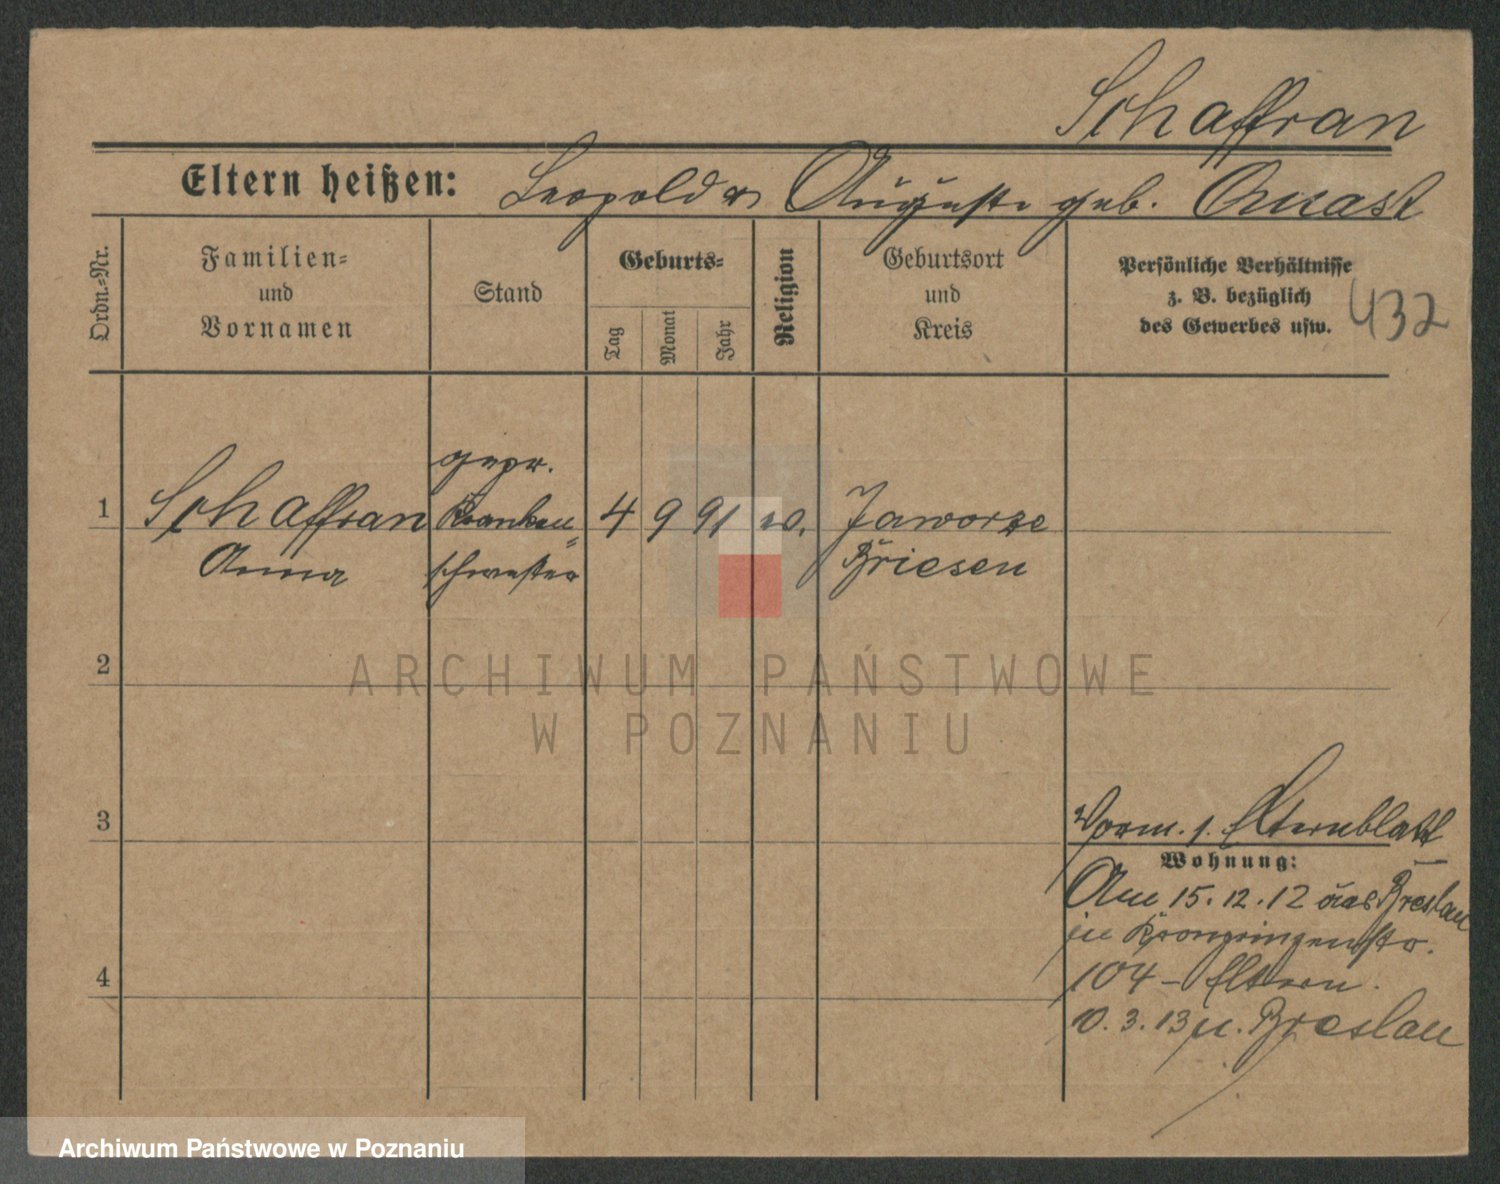 Schaffran
Eltern heißen: Leopold u. Auguste geb. Quast
Ordn.-Nr.
Familien-
und
Vornamen
Stand
Geburts-
Tag
Monat
Jahr
Religion
Geburtsort
und
Kreis
Persönliche Verhältnisse
z. B. bezüglich
des Gewerbes usw.
432
gepr.
1 Schaffran Kranken= 4 9 91 Jaworze
Anna schwester Briesen
2
ARCHIWUM PAŃSTWOWE
W POZNANIU
3
Vorm. s. Elternblatt
Wohnung:
Am 15.12.12 aus Breslau
in Kronprinzenstr.
4
104 – Eltern.
3.13 n. Breslau
Archiwum Państwowe w Poznaniu